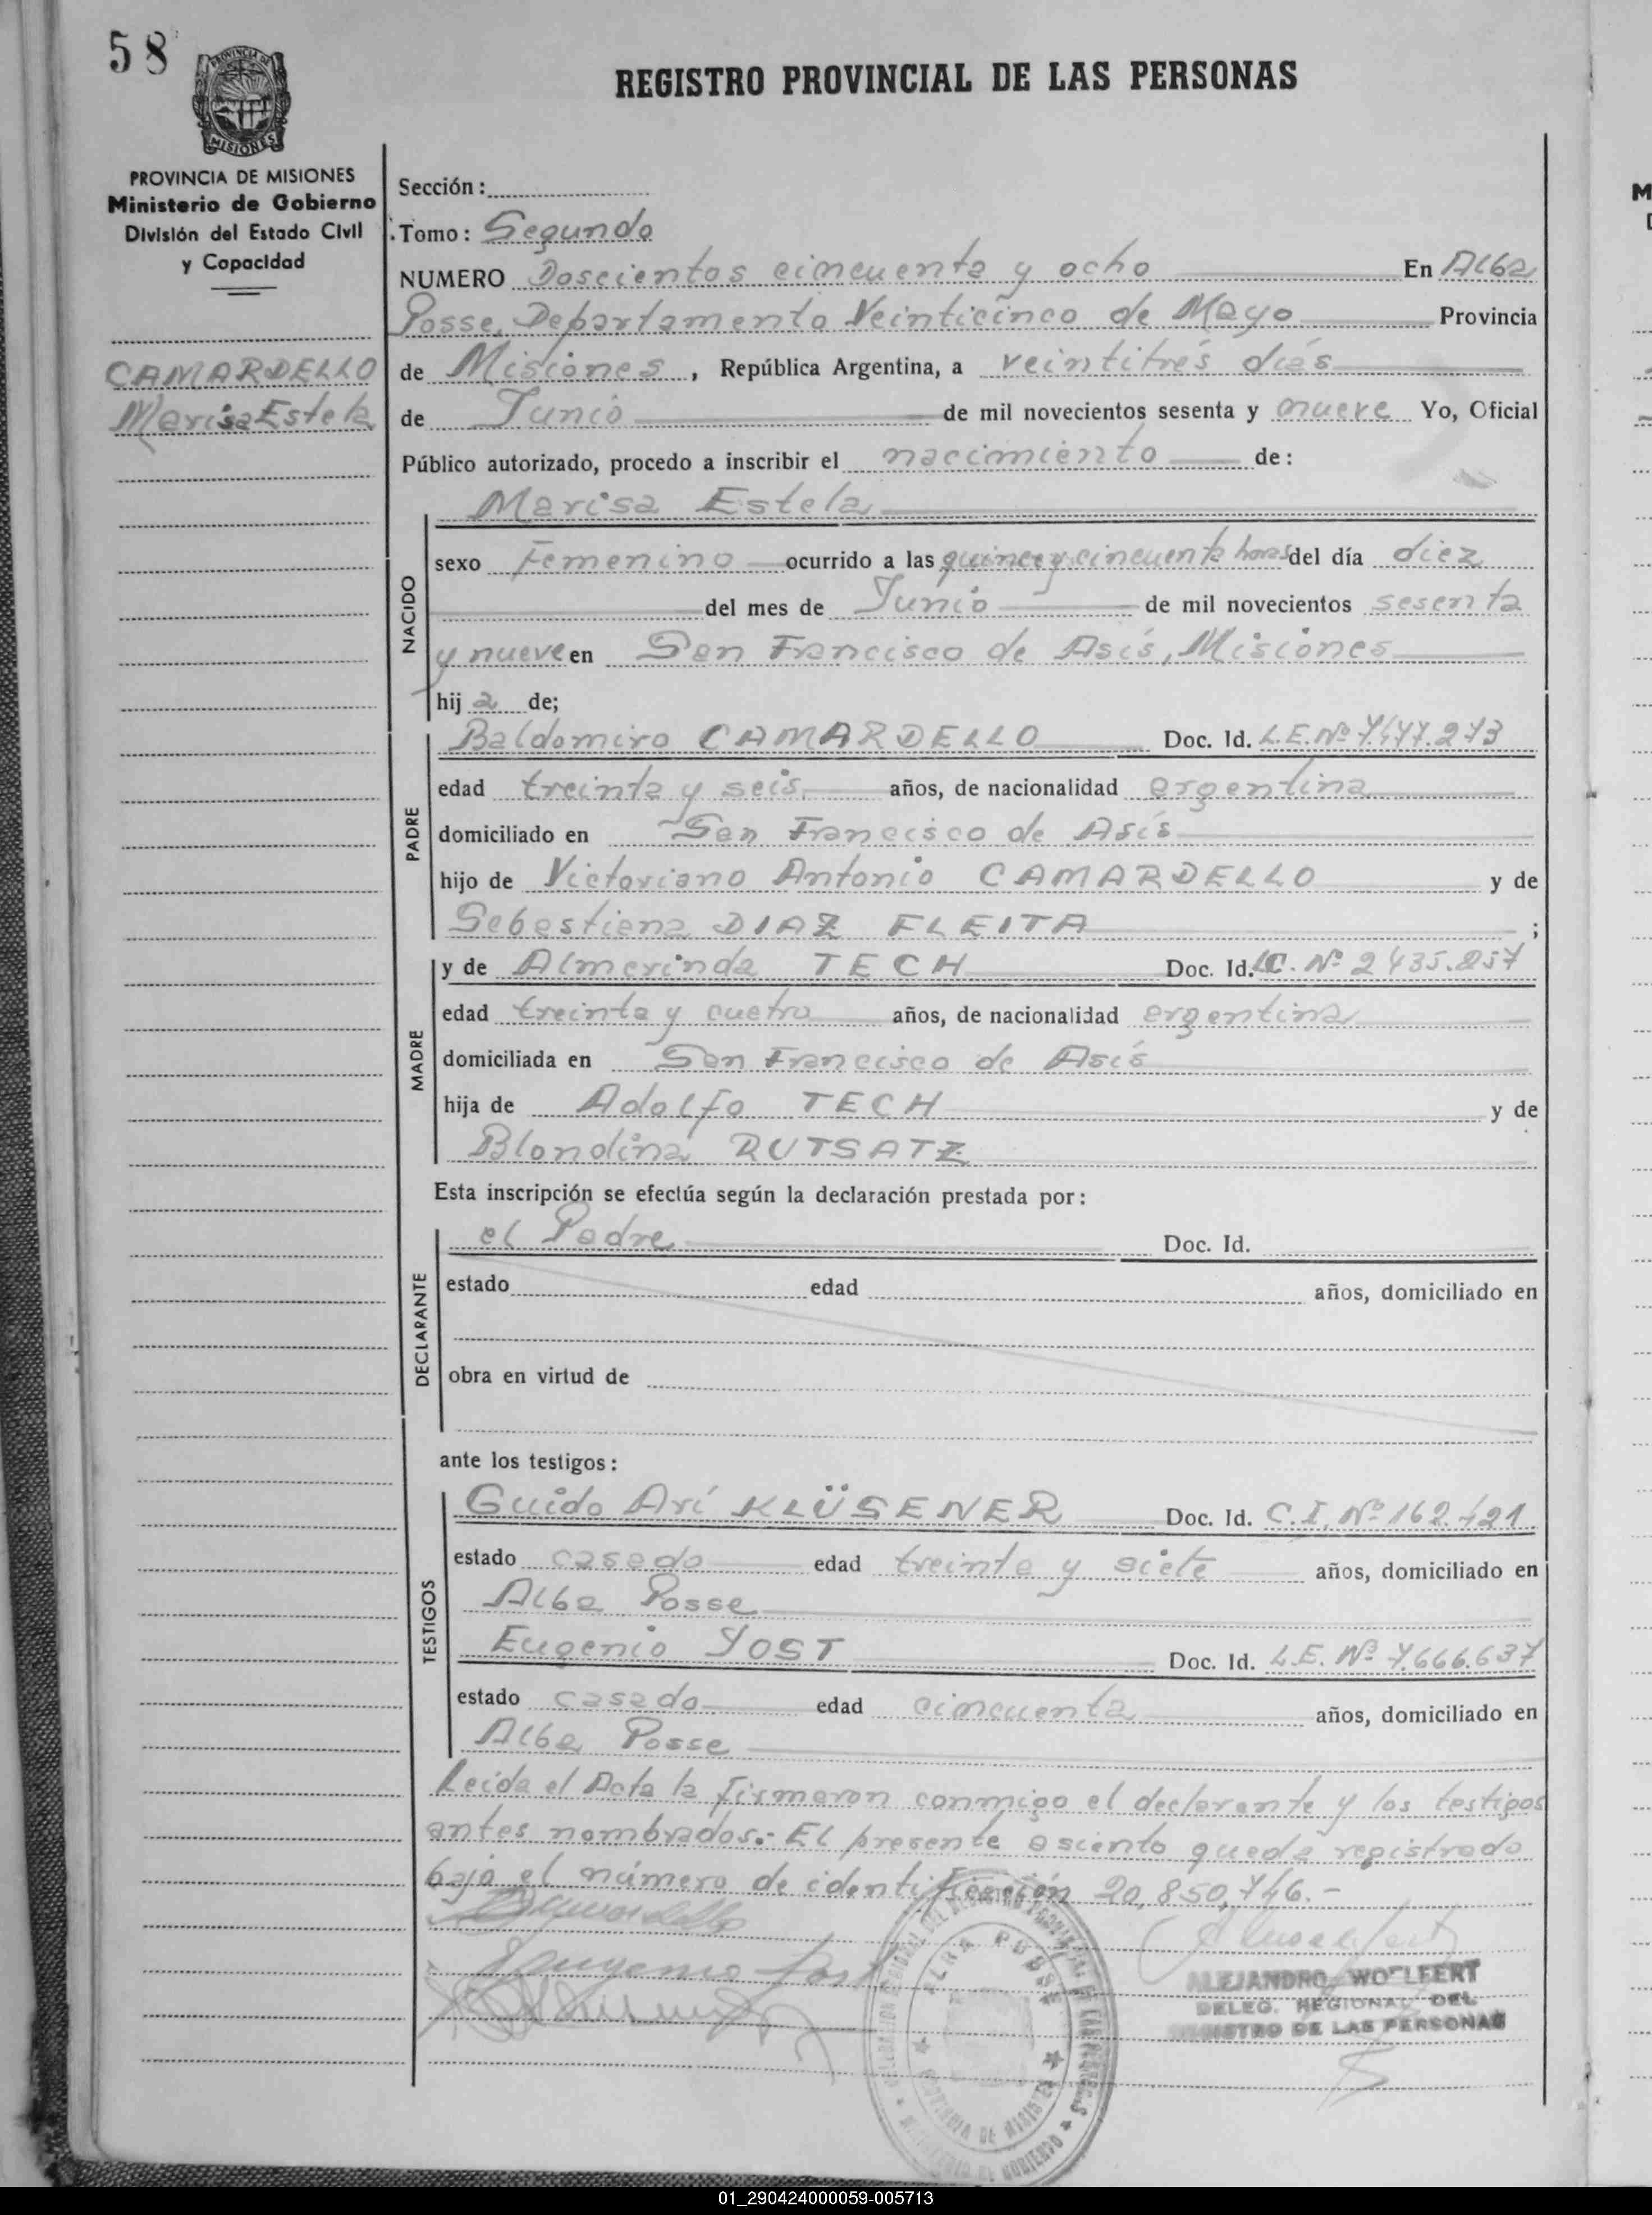 58
REGISTRO PROVINCIAL DE LAS PERSONAS
PROVINCIA DE MISIONES
Ministerio de Gobierno
División del Estado Civil
y Capacidad
CAMARDELLO
Marisa Estela
Sección:
Tomo: Segundo
NUMERO Doscientos cincuenta y ocho En Alba
Posse, Departamento Veinticinco de Mayo Provincia
de Misiones, República Argentina, a veintitrés días
de Junio de mil novecientos sesenta y nueve Yo, Oficial
Público autorizado, procedo a inscribir el nacimiento de:
Marisa Estela
NACIDO
sexo Femenino ocurrido a las quince y cincuenta horas del día diez
del mes de Junio de mil novecientos sesenta
y nueve en San Francisco de Asís, Misiones
hija de;
PADRE
Baldomiro CAMARDELLO Doc. Id. L.E. Nº 7.477.273
edad treinta y seis años, de nacionalidad argentina
domiciliado en San Francisco de Asís
hijo de Victoriano Antonio CAMARDELLO y de
Sebastiana DIAZ FLEITA ;
MADRE
y de Almerinda TECH Doc. Id. LC. Nº 2.435.857
edad treinta y cuatro años, de nacionalidad argentina
domiciliada en San Francisco de Asís
hija de Adolfo TECH y de
Blondina RUTSATZ
Esta inscripción se efectúa según la declaración prestada por:
DECLARANTE
el Padre Doc. Id.
estado edad años, domiciliado en
obra en virtud de
ante los testigos:
TESTIGOS
Guido Arí KLÜSENER Doc. Id. C.I. Nº 162.421
estado casado edad treinta y siete años, domiciliado en
Alba Posse
Eugenio YOST Doc. Id. L.E. Nº 7.666.637
estado casado edad cincuenta años, domiciliado en
Alba Posse
Leída el Acta la firmaron conmigo el declarante y los testigos
antes nombrados.- El presente asiento queda registrado
bajo el número de identificación 20,850,746.-
Eugenio Yost
ALBA POSSE
PROVINCIA DE MISIONES
MINISTERIO DE GOBIERNO
ALEJANDRO WOLFERT
DELEG. REGIONAL DEL
REGISTRO DE LAS PERSONAS
01_290424000059-005713